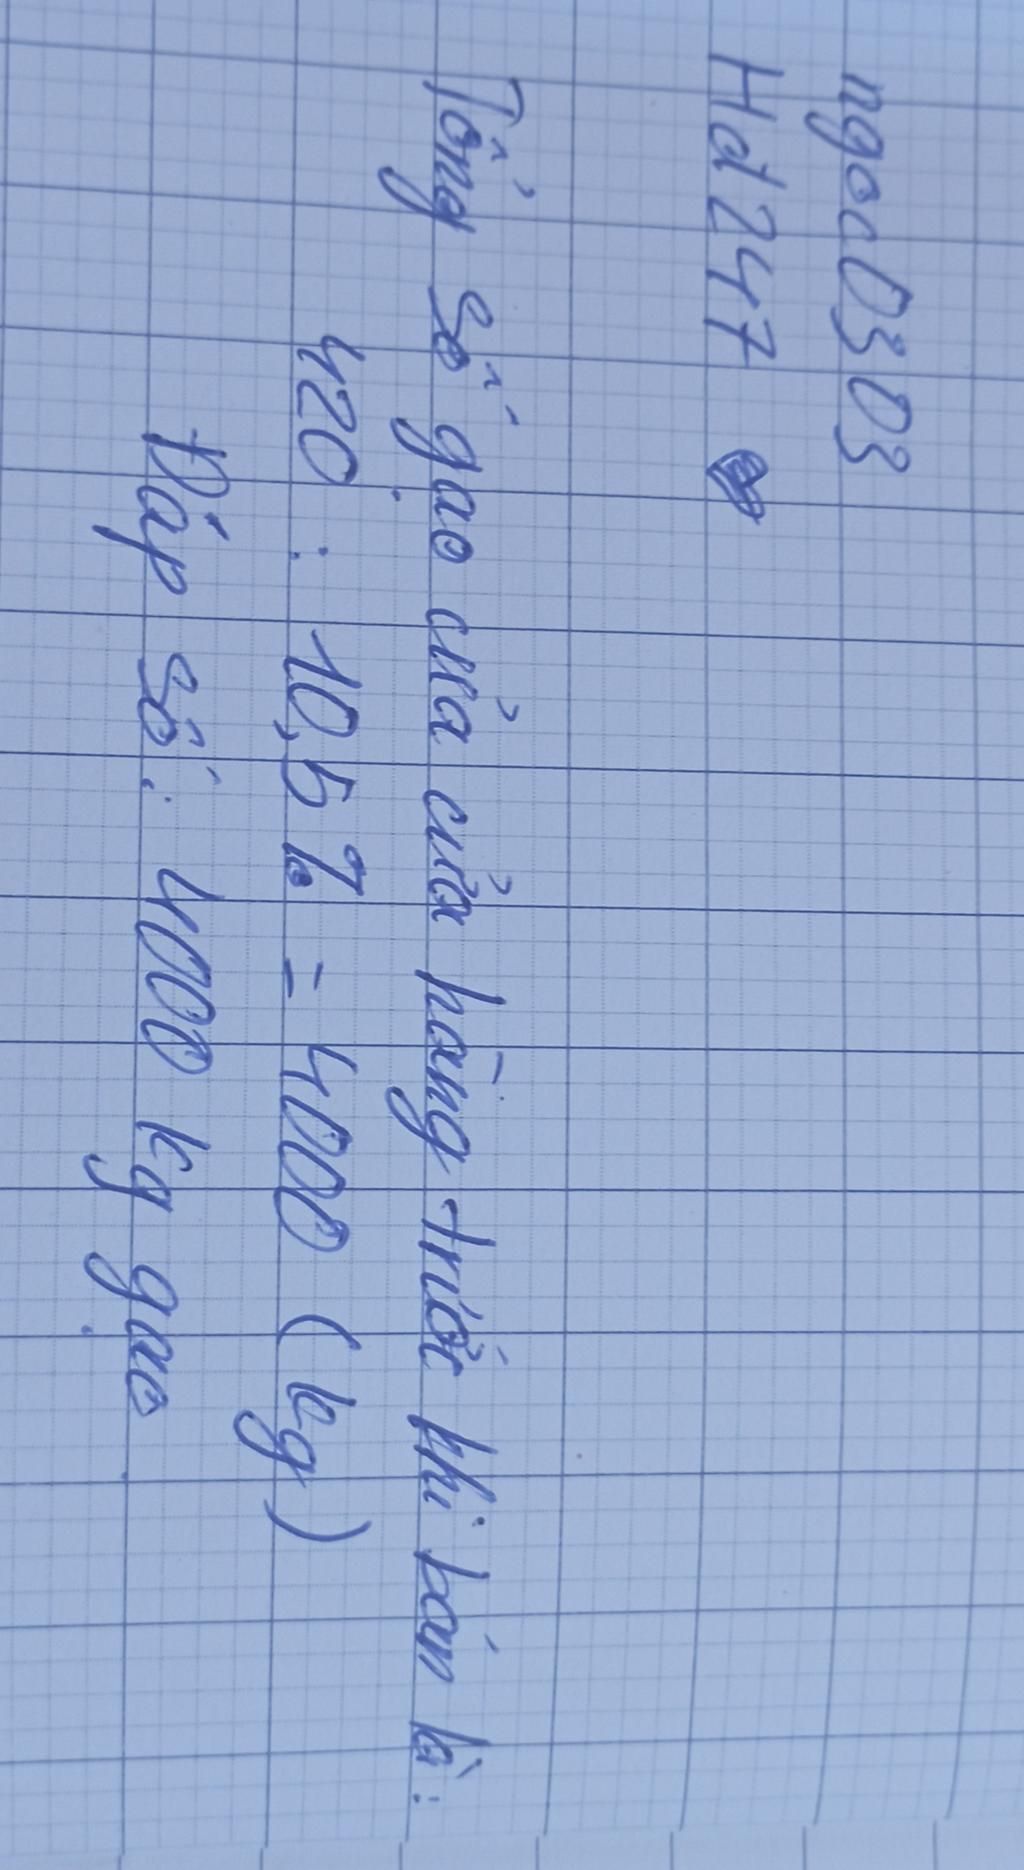 ngoc0303
Hd247
Tổng số gạo của cửa hàng trước khi bán là:
420 : 10,5 % = 4000 (kg)
Đáp số: 4000 kg gạo